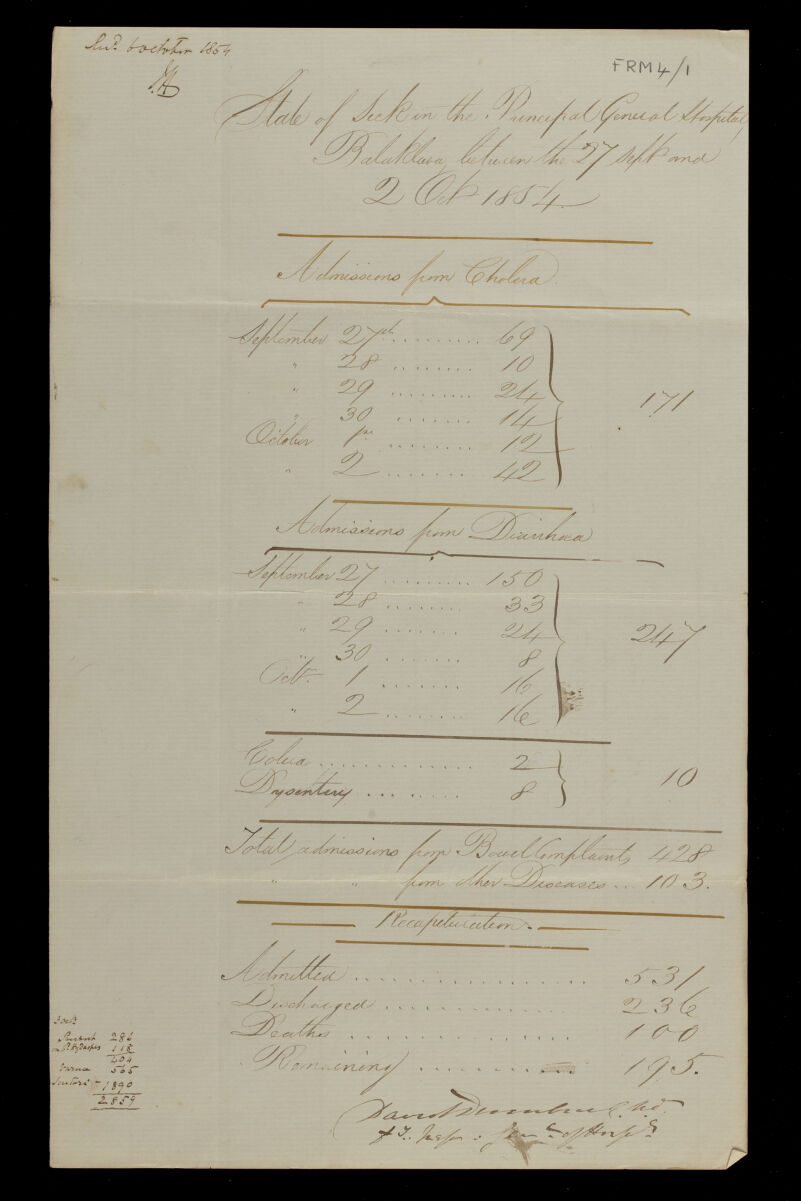 6 October 1854
FRM4/1
State of Sick in the Principal General Hospital
Balaklava between the 27 Sept and
2 Oct 1854
Admissions from Cholera.
September 27th .......... 69
" 28 ........ 10
" 29 ......... 24
" 30 ....... 14
October 1st ........ 12
" 2 ....... 42
171
Admissions from Diarrhoea
September 27 ......... 150
" 28 ........ 33
" 29 ....... 24
" 30 ....... 8
Octr. 1 ....... 16
" 2 ....... 16
247
Colica .............. 2
Dysentery ......... 8
10
Total admissions from Bowel Complaints 428
" " from other Diseases .. 103.
Recapitulation
Admitted .................. 531
Discharged .............. 236
Deaths ................. 100
Remaining ............ 195.
Present 286
118
404
Varna 565
Scutari 1890
2859
David